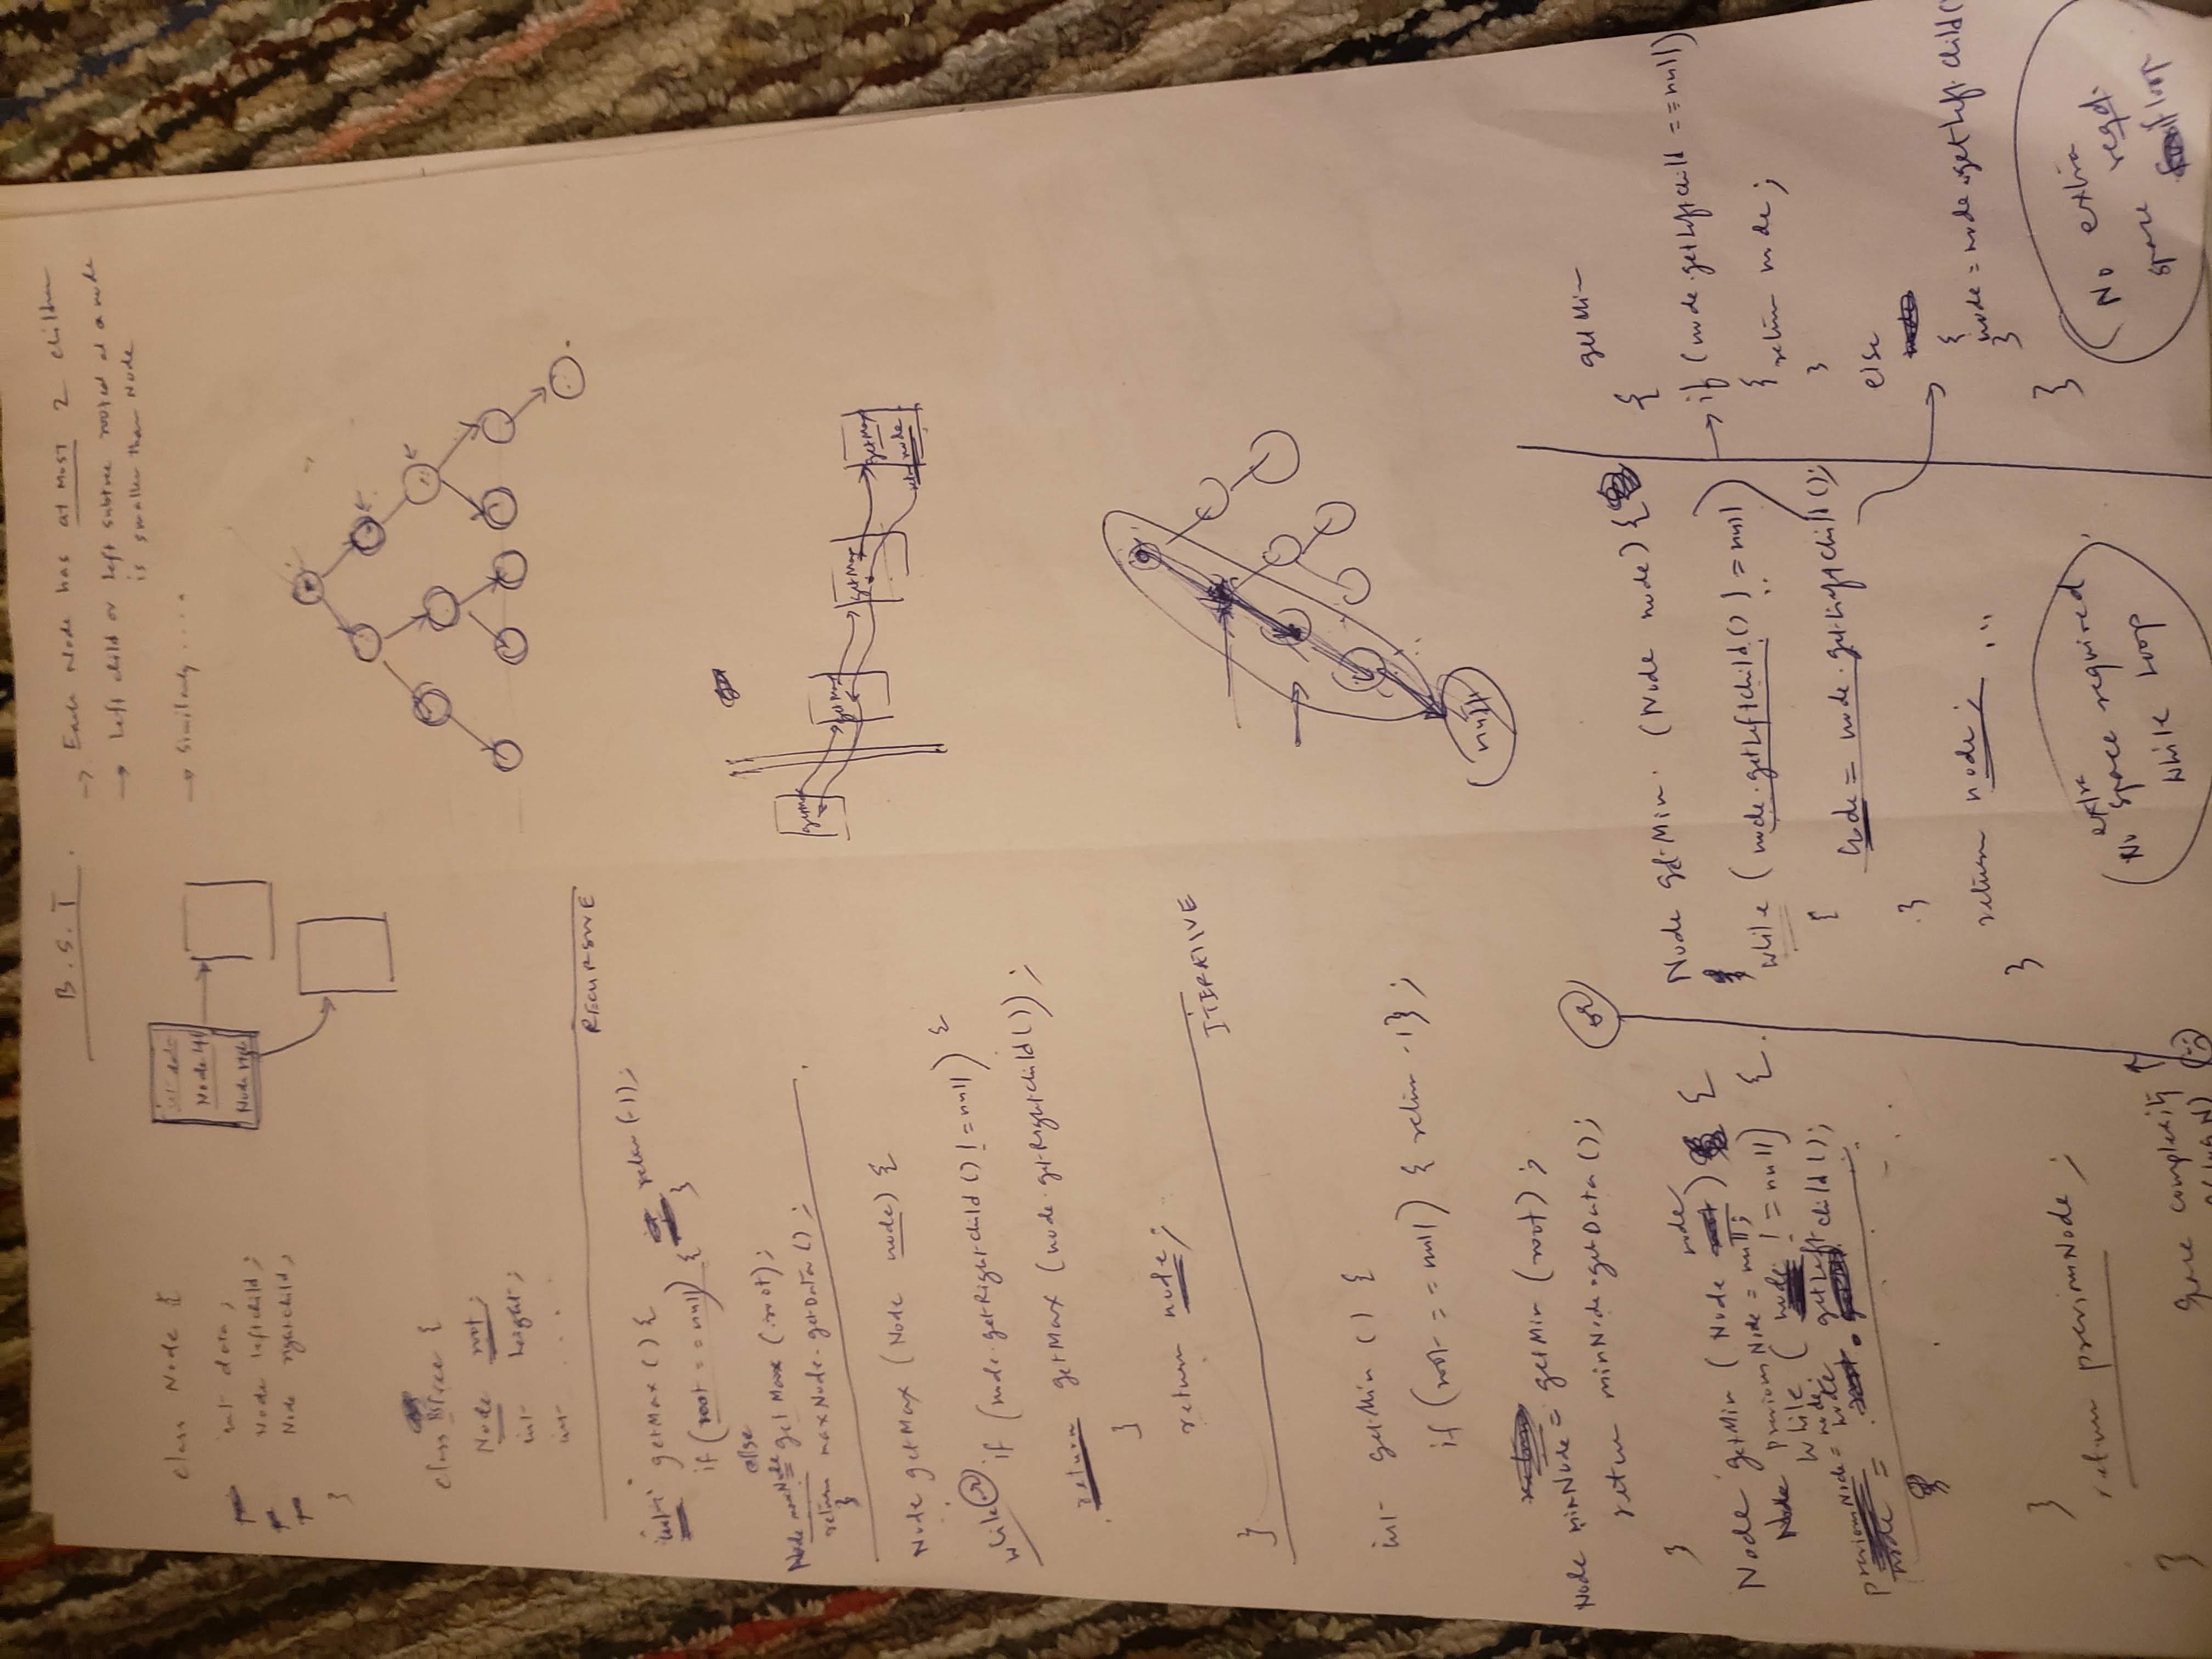 B.S.T.
→ Each Node has at most 2 children
→ Left child or left subtree rooted at a node
is smaller than Node
→ Similarly ....
class Node {
int data;
Node leftchild;
Node rightchild;
}
int data
Node left
Node right
class BSTree {
Node root;
int height;
int ....
RECURSIVE
"int" getMax () {
if (root == null) { return (-1);
}
else
Node maxNode = getMax (root);
return maxNode.getData ();
}
getMax
getMax
getMax
getMax
return node
Node getMax (Node node) {
while or if (node.getRightchild () != null) {
return getMax (node.getRightchild ());
}
return node;
}
ITERATIVE
int getMin () {
if (root == null) { return -1};
Node minNode = getMin (root);
return minNode.getData ();
}
null
Node getMin (Node node) {
Node previousNode = null;
while (node != null) {
previousNode = node.
node = node.getLeftchild ();
}
return previousNode;
}
Space complexity ↑
O(log N)
or
Node getMin. (Node node) {
while (node.getLeftchild () != null)
{
node = node.getLeftchild ();
}
return node; ...
}
No extra space required
while loop
getMin
{
→ if (node.getLeftchild == null)
{ return node;
}
else
{
node = node.getLeft child (
}
}
No extra
space reqd.
if loop